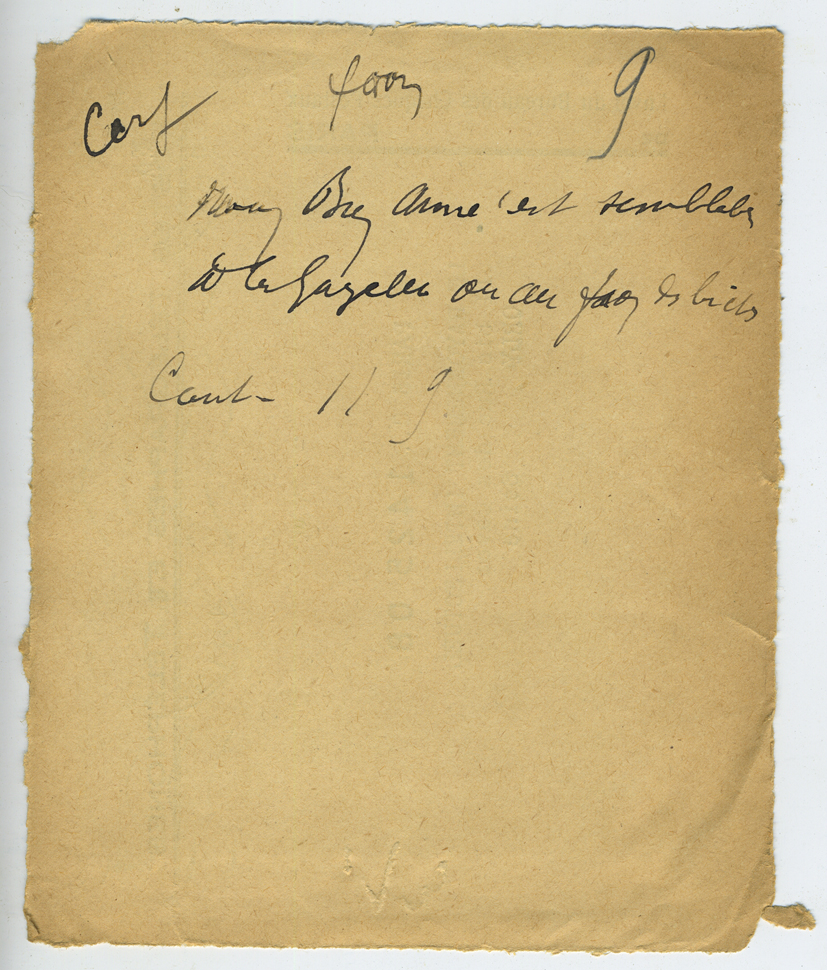 Cerf faon 9
mon Bien Aimé est semblable
à la Gazelle ou au faon ds biches
Cant- II 9